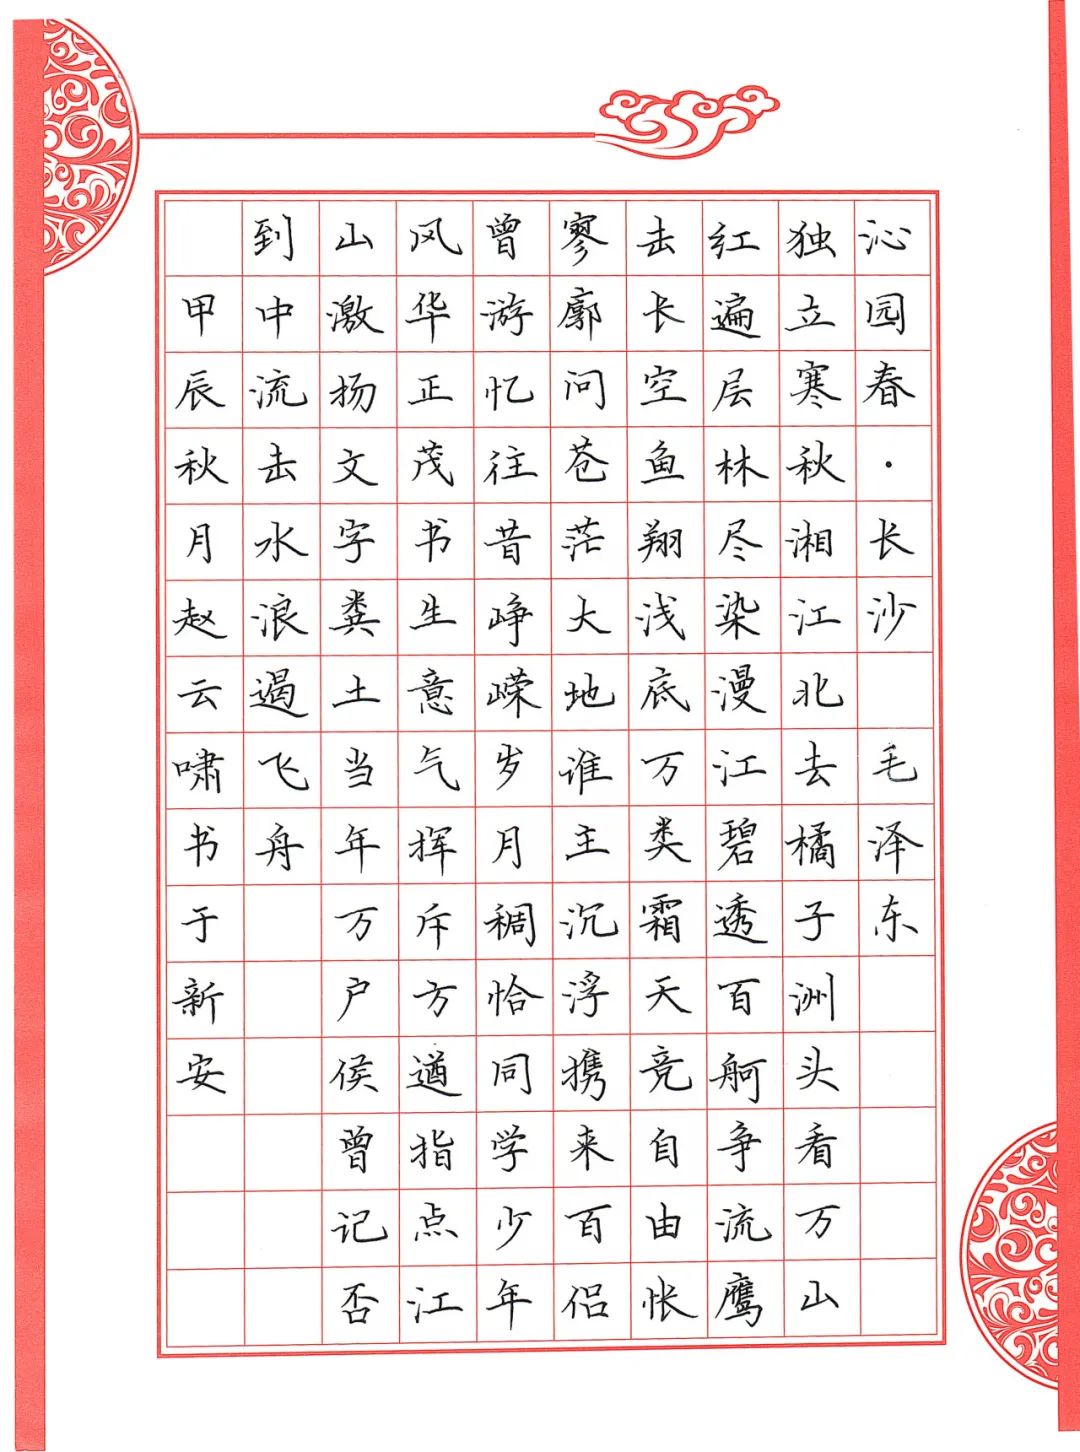 沁园春·长沙 毛泽东
独立寒秋湘江北去橘子洲头看万山
红遍层林尽染漫江碧透百舸争流鹰
击长空鱼翔浅底万类霜天竞自由怅
寥廓问苍茫大地谁主沉浮携来百侣
曾游忆往昔峥嵘岁月稠恰同学少年
风华正茂书生意气挥斥方遒指点江
山激扬文字粪土当年万户侯曾记否
到中流击水浪遏飞舟
甲辰秋月赵云啸书于新安